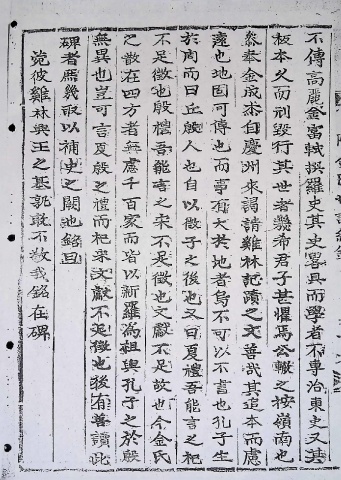 不傳高麗金富軾撰羅史其史畧具而學者不專治東史又其
板本久而刓毀行其世者幾希君子甚惧焉公轍之按嶺南也
叅奉金成杰自慶州來謁請雞林記蹟之文善哉其追本而慮
遠也地固可傳也而事有大於地者烏不可以不書也孔子生
於周而曰丘殷人也自以微子之後也又曰夏禮吾能言之杞
不足徵也殷禮吾能言之宋不足徵也文獻不足故也今金氏
之散在四方者無慮千百家而皆以新羅爲祖與孔子之於殷
無異也豈可言夏殷之禮而杞宋文獻不足徵也後有善讀此
碑者庶幾取以補史之闕也銘曰
菀彼雞林興王之基孰敢不敬我銘在碑